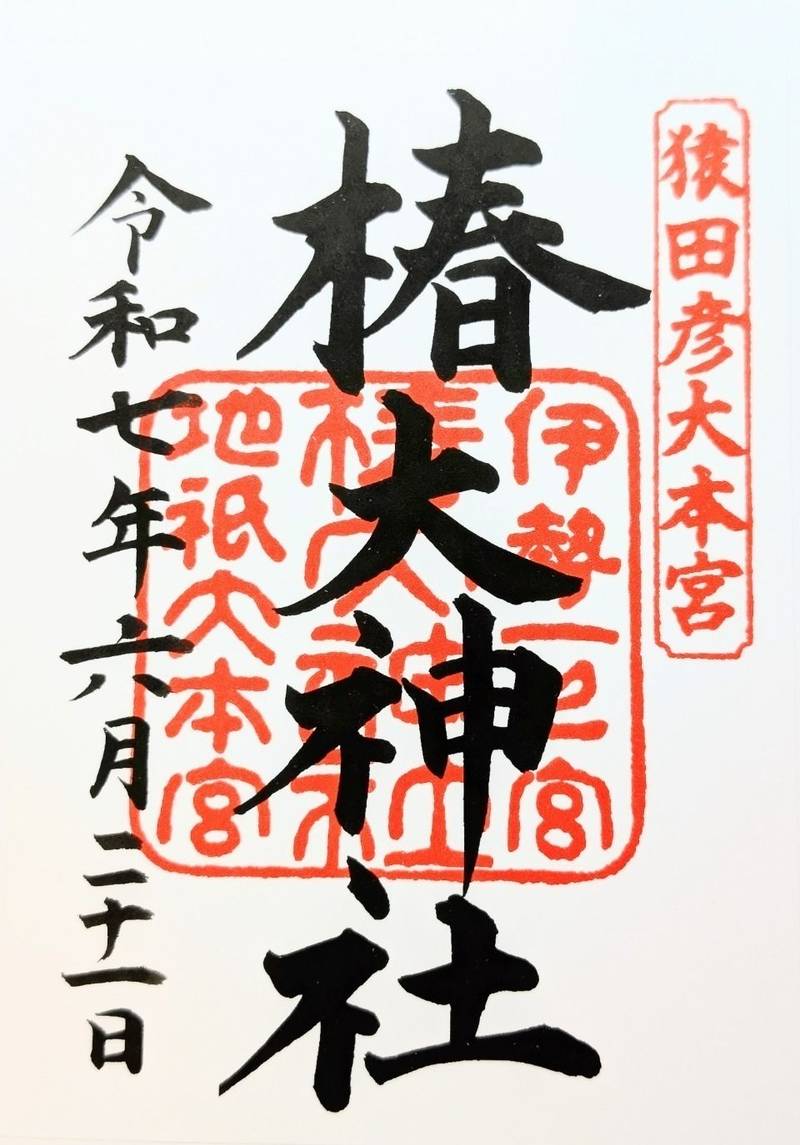 猿田彦大本宮
椿大神社
伊勢一之宮
椿大神社
地祇大本宮
令和七年六月二十一日